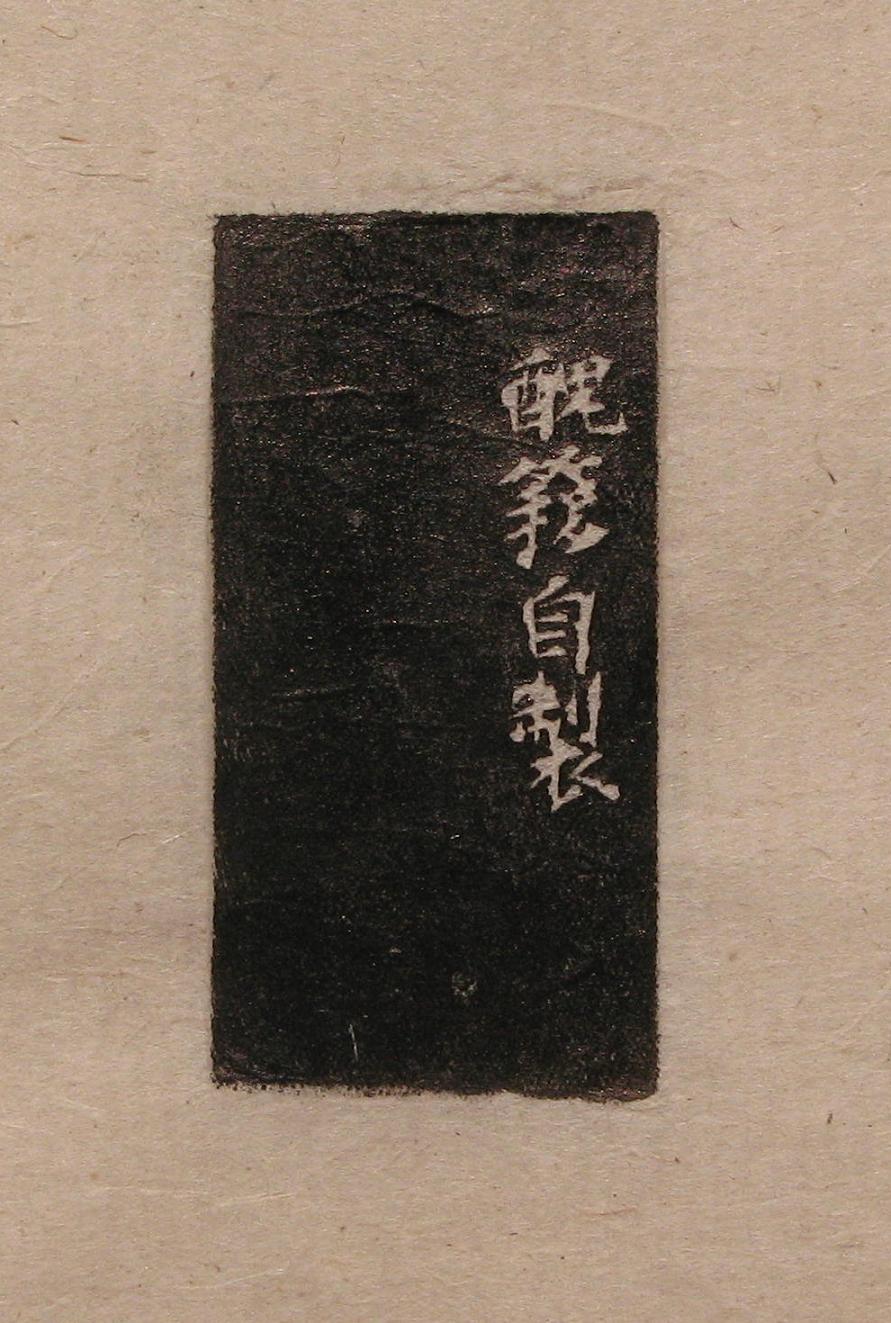 醜簃自製